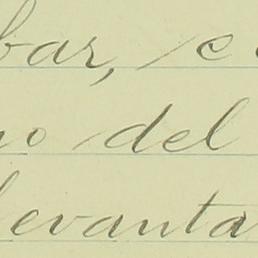 bar, e
no del
levanta